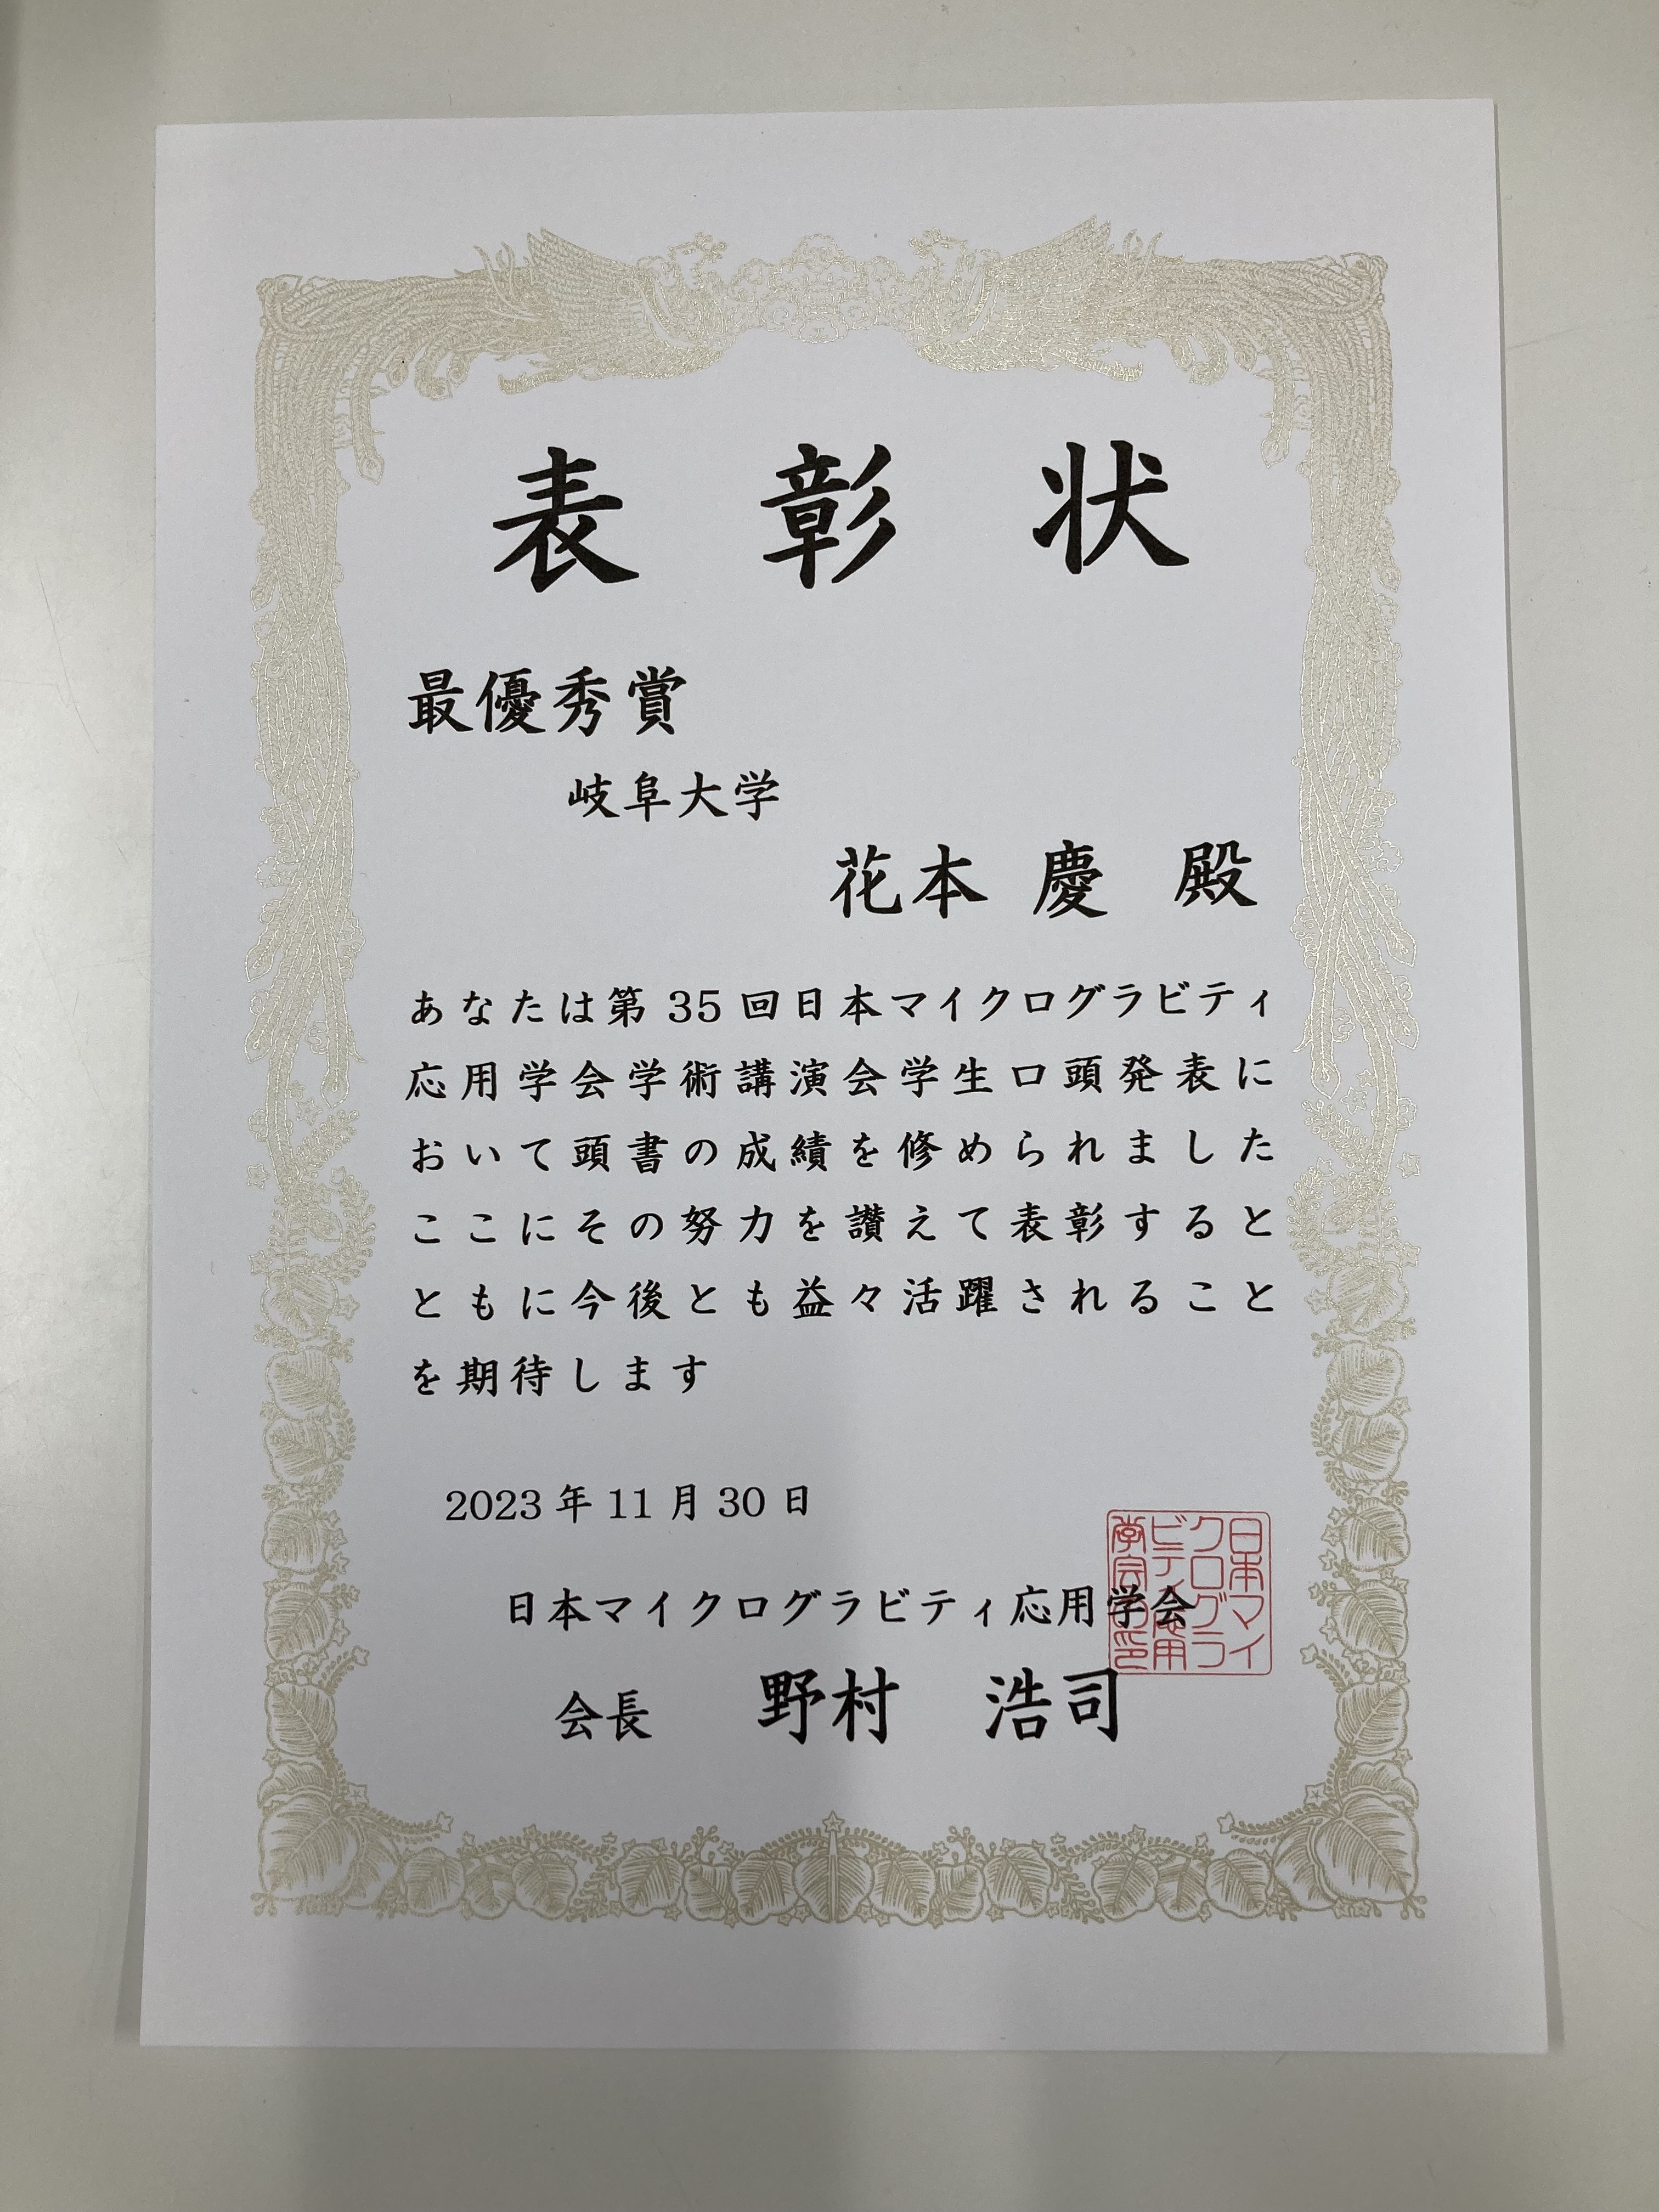 表彰状
最優秀賞
岐阜大学
花本 慶 殿
あなたは第 35 回日本マイクログラビティ
応用学会学術講演会学生口頭発表に
おいて頭書の成績を修められました
ここにその努力を讃えて表彰すると
ともに今後とも益々活躍されること
を期待します
2023 年 11 月 30 日
日本マイクログラビティ応用学会
会長 野村 浩司
日本マイ
クログラ
ビティ応用
学会之印